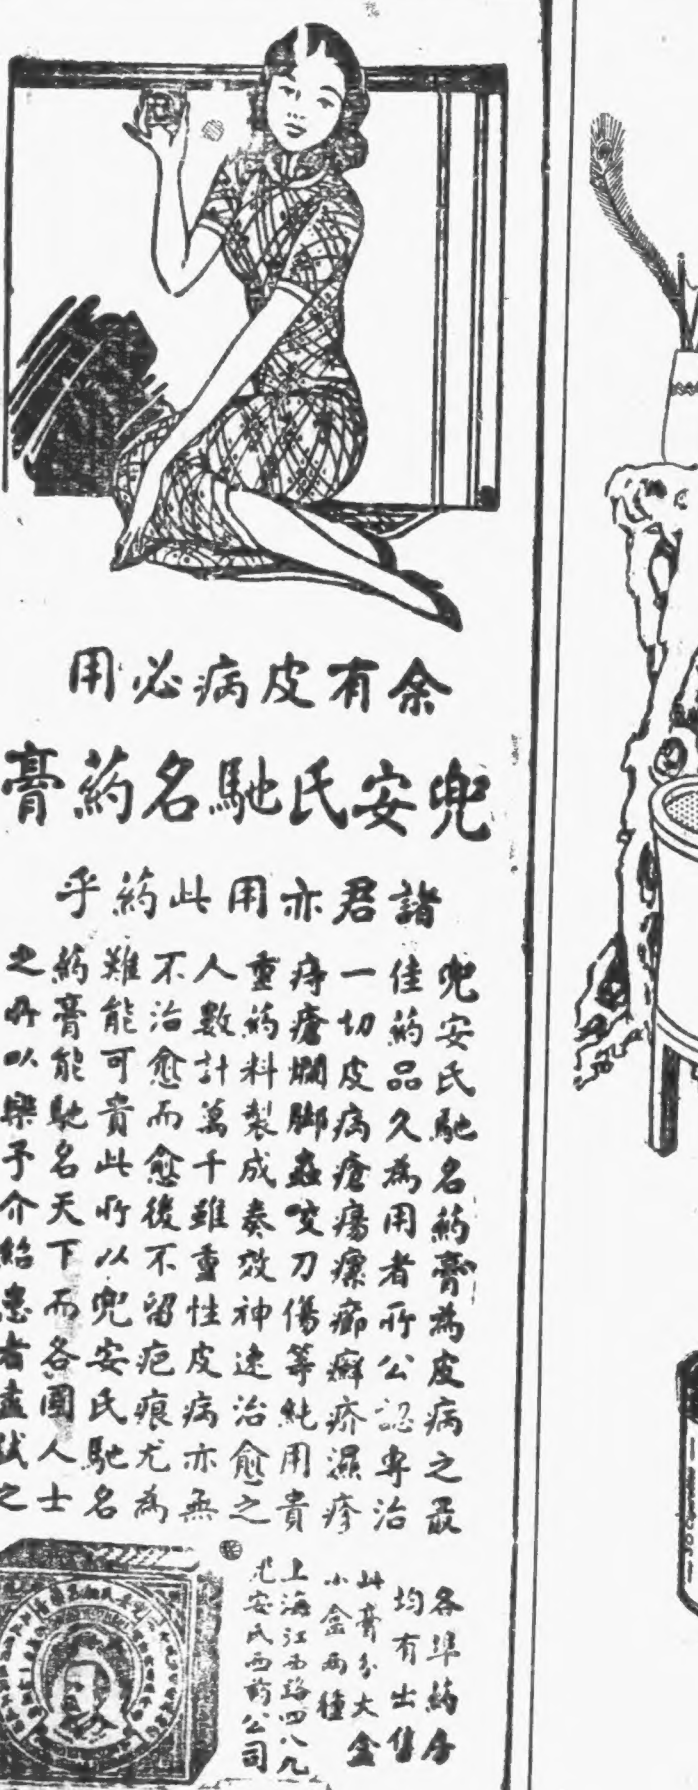 余有皮病必用
兜安氏馳名葯膏
諸君亦用此葯乎
兜安氏馳名葯膏為皮病之最
佳葯品久為用者所公認專治
一切皮病瘡瘍瘰癤癬疥濕疹
痔瘡爛脚蟲咬刀傷等純用貴
重葯料製成奏效神速治愈之
人數計萬千雖重性皮病亦無
不治愈而愈後不留疤痕尤為
難能可貴此所以兜安氏馳名
葯膏能馳名天下而各國人士
之所以樂予介紹患者盍試之
各埠葯房
均有出售
此膏分大盒
小盒两種
上海江西路四八九
兜安氏西葯公司